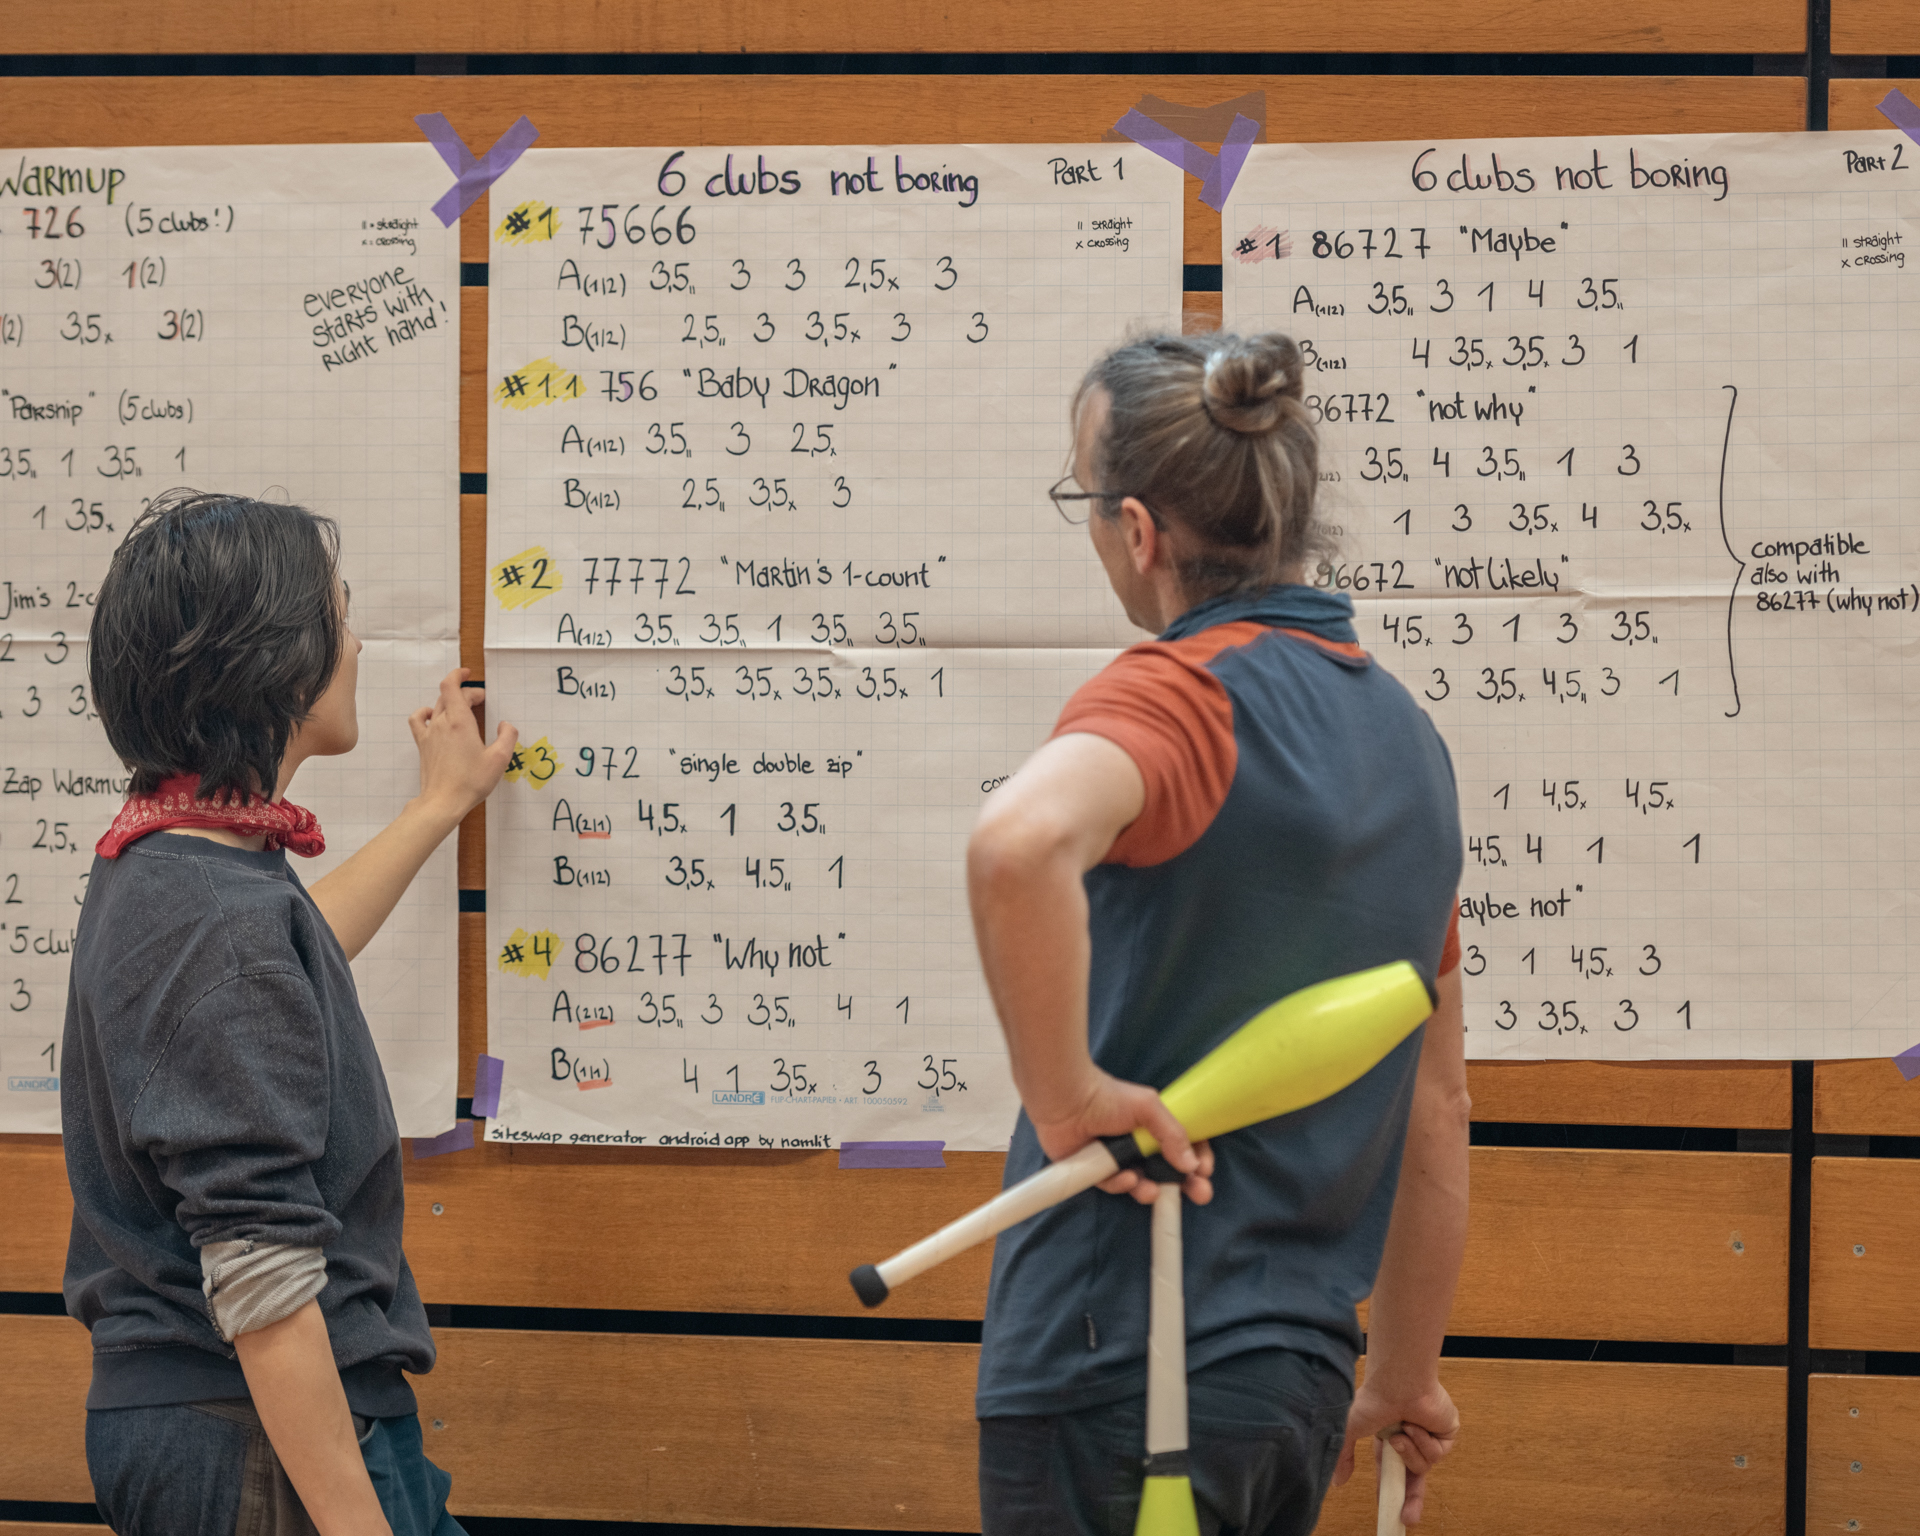 Warmup
726 (5 clubs!)
॥ = straight
x = crossing
3(2) 1(2)
(2) 3,5x 3(2)
everyone
starts with
right hand!
"Parsnip" (5 clubs)
3,5ıı 1 3,5ıı 1
1 3,5x
Jim's 2-c
2 3
3 3,5
Zap Warmup
2,5x
2 3
"5 club
3
1
LANDRÉ
6 clubs not boring Part 1
#1 75666
ıı straight
x crossing
A(1|2) 3,5ıı 3 3 2,5x 3
B(1|2) 2,5ıı 3 3,5x 3 3
#1.1 756 "Baby Dragon"
A(1|2) 3,5ıı 3 2,5x
B(1|2) 2,5ıı 3,5x 3
#2 77772 "Martin's 1-count"
A(1|2) 3,5ıı 3,5ıı 1 3,5ıı 3,5ıı
B(1|2) 3,5x 3,5x 3,5x 3,5x 1
#3 972 "single double zip"
com
A(2|1) 4,5x 1 3,5ıı
B(1|2) 3,5x 4.5ıı 1
#4 86277 "Why not"
A(2|2) 3,5ıı 3 3,5ıı 4 1
B(1|1) 4 1 3,5x 3 3,5x
LANDRÉ FLIP-CHART-PAPIER • ART. 100050592
siteswap generator android app by namlit
6 clubs not boring Part 2
#1 86727 "Maybe"
ıı straight
x crossing
A(1|2) 3,5ıı 3 1 4 3,5ıı
B(1|2) 4 3,5x 3,5x 3 1
86772 "not why"
3,5ıı 4 3,5ıı 1 3
1 3 3,5x 4 3,5x
96672 "not likely"
4,5x 3 1 3 3,5ıı
3 3,5x 4,5ıı 3 1
compatible
also with
86277 (why not)
1 4,5x 4,5x
4,5ıı 4 1 1
aybe not"
3 1 4,5x 3
3 3,5x 3 1